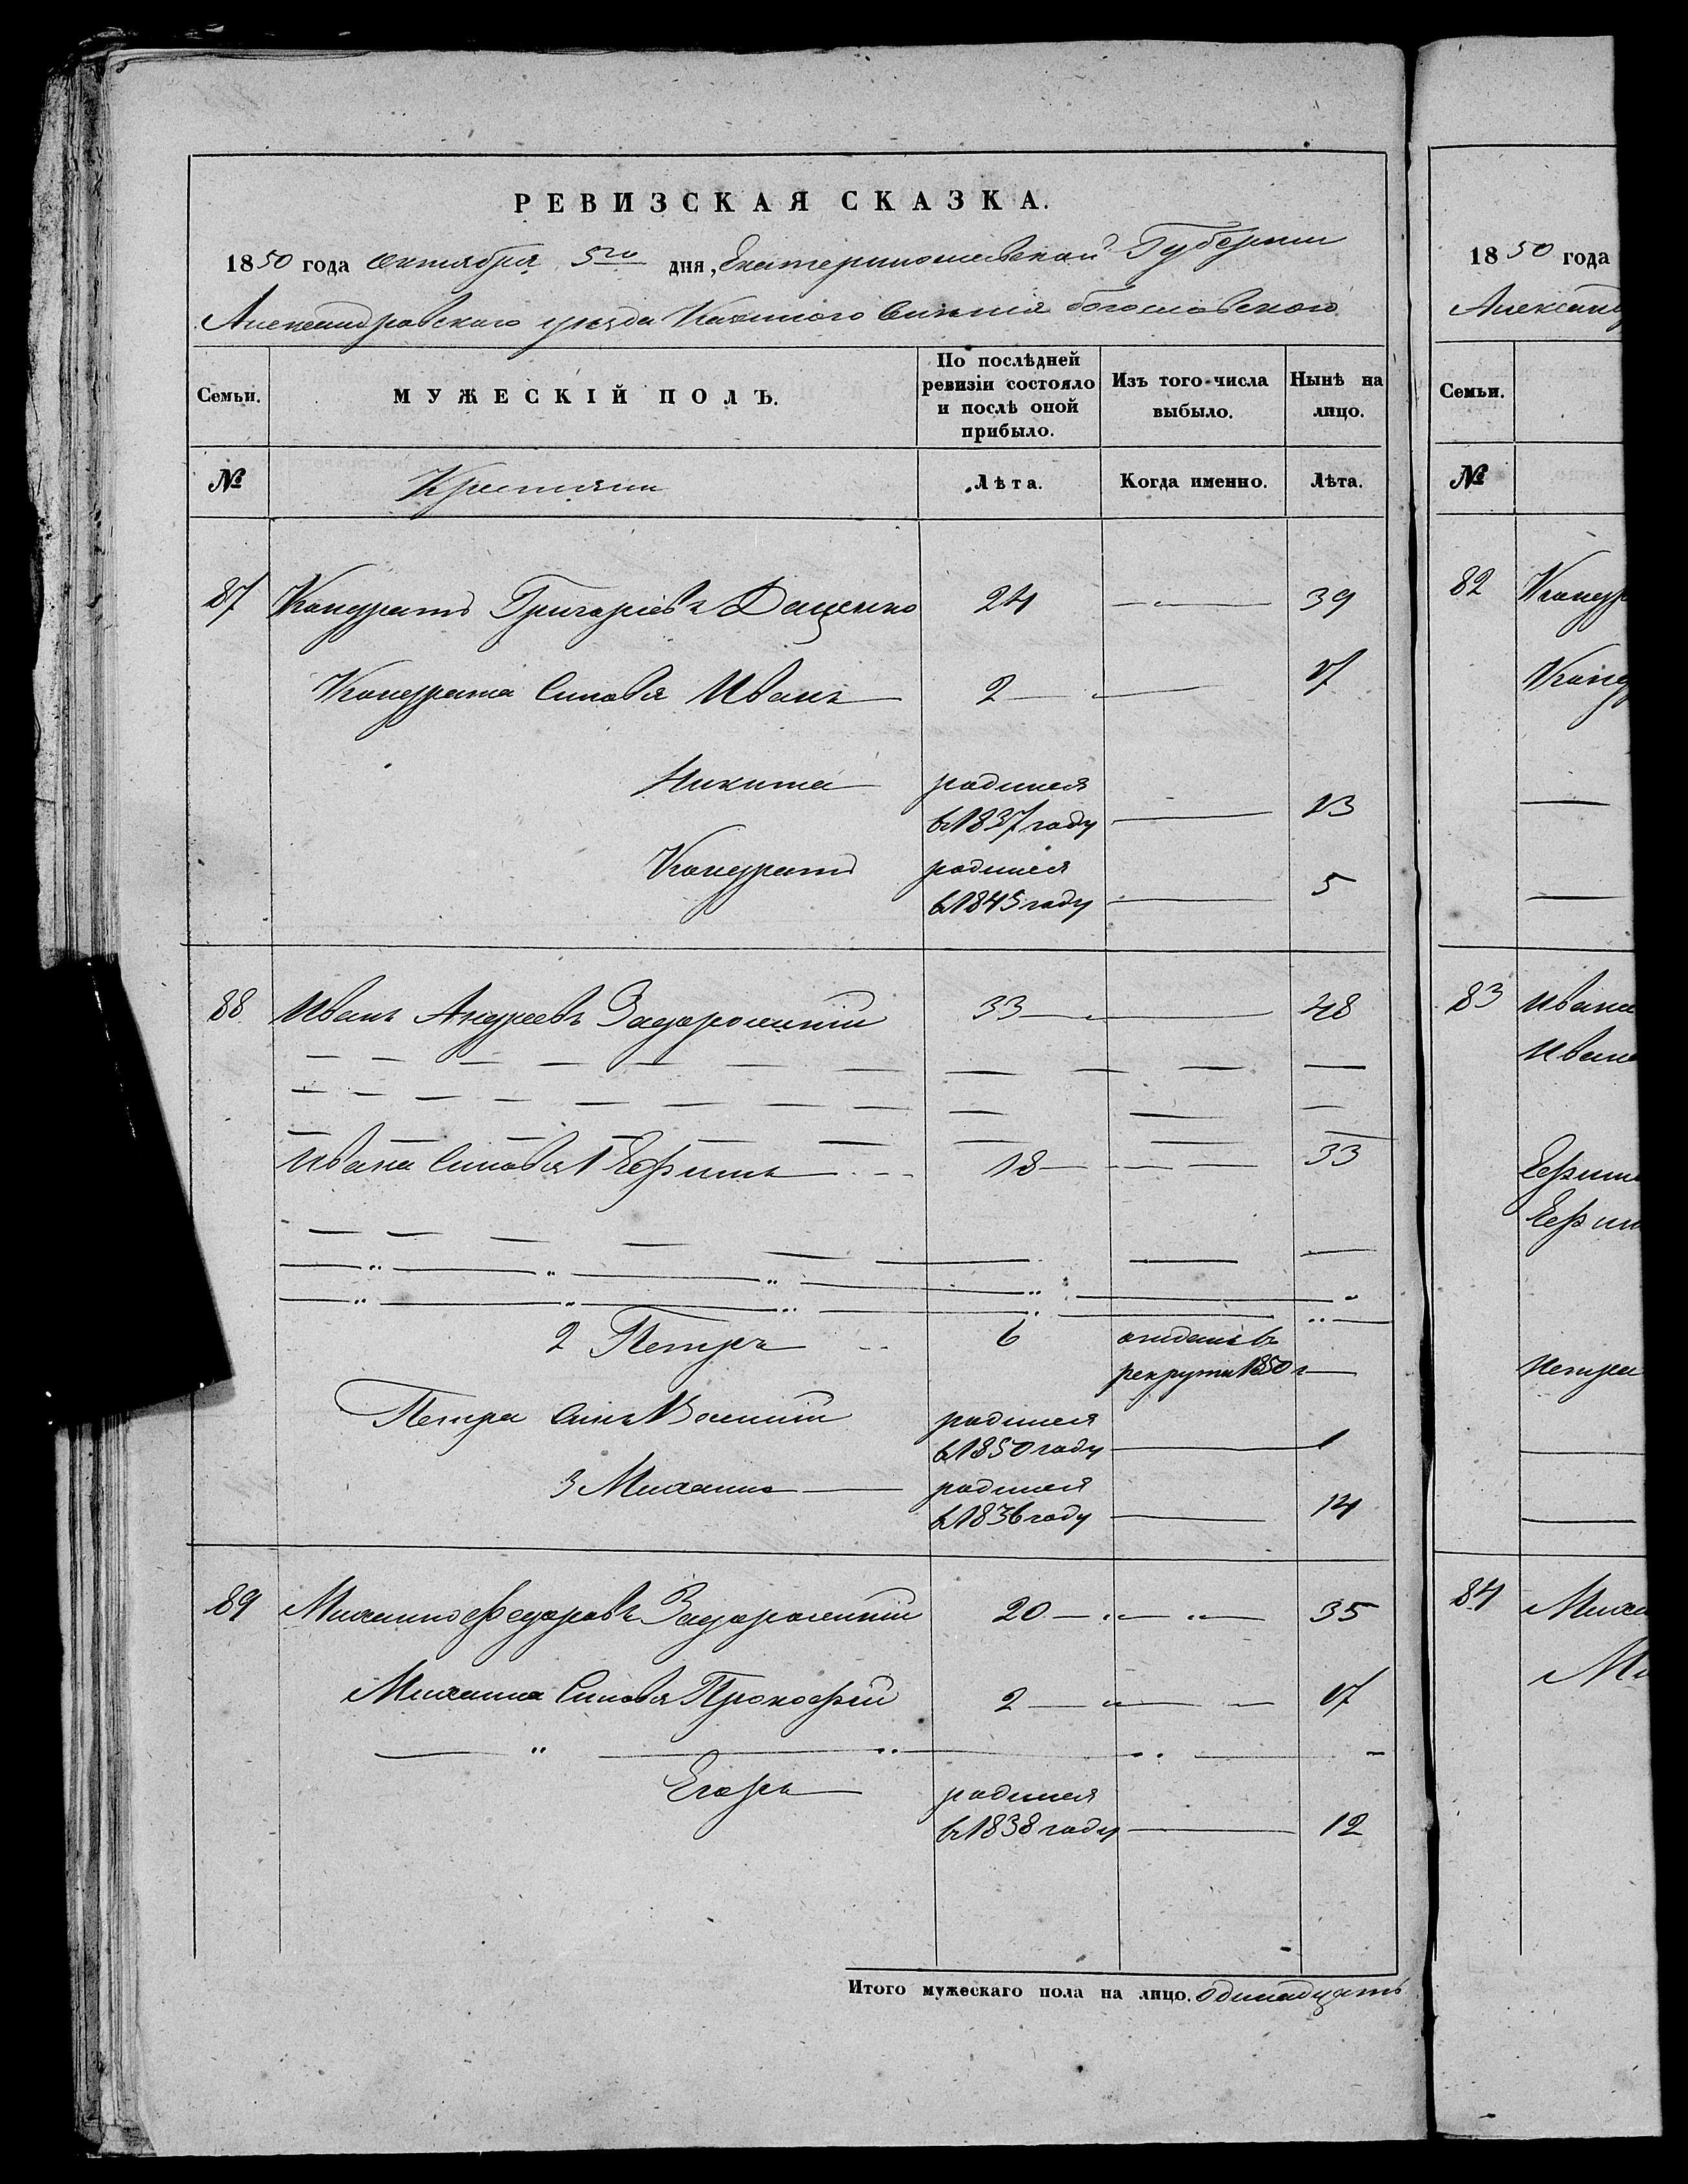 РЕВИЗСКАЯ СКАЗКА.
1850 года октября 5го дня, Екатеринославской Губернии
Александровского уезда Казенного Селения богословского
Семьи. МУЖЕСКІЙ ПОЛЪ. По послѣдней ревизіи состояло и послѣ оной прибыло. Изъ того числа выбыло. Нынѣ на лицо.
№ Крестьяни Лѣта. Когда именно. Лѣта.
87 Кондратъ Григоріевъ Даценко 24 39
Кондрата Синовья Иванъ 2 17
Никита родился
въ 1837 году 13
Кондратъ родился
въ 1845 году 5
88 Иванъ Андреевъ Задорожній 33 48
Ивана Синовья 1 Ефимъ 18 33
2 Петръ 6 отданъ в
рекруты 1850 г
Петра синъ Василий родился
в 1850 году 1
3 Михаилъ родился
в 1836 году 14
89 Михаило Федоровъ Задорожній 20 35
Михаила Синовья Прокофий 2 17
Егоръ родился
въ 1838 году 12
Итого мужескаго пола на лицо. одинадцать
1850 года
Александ
Семьи.
№
82 Кондр
Конд
83 Ивана
Иван
Ефим
Ефим
Петра
84 Миха
Ми